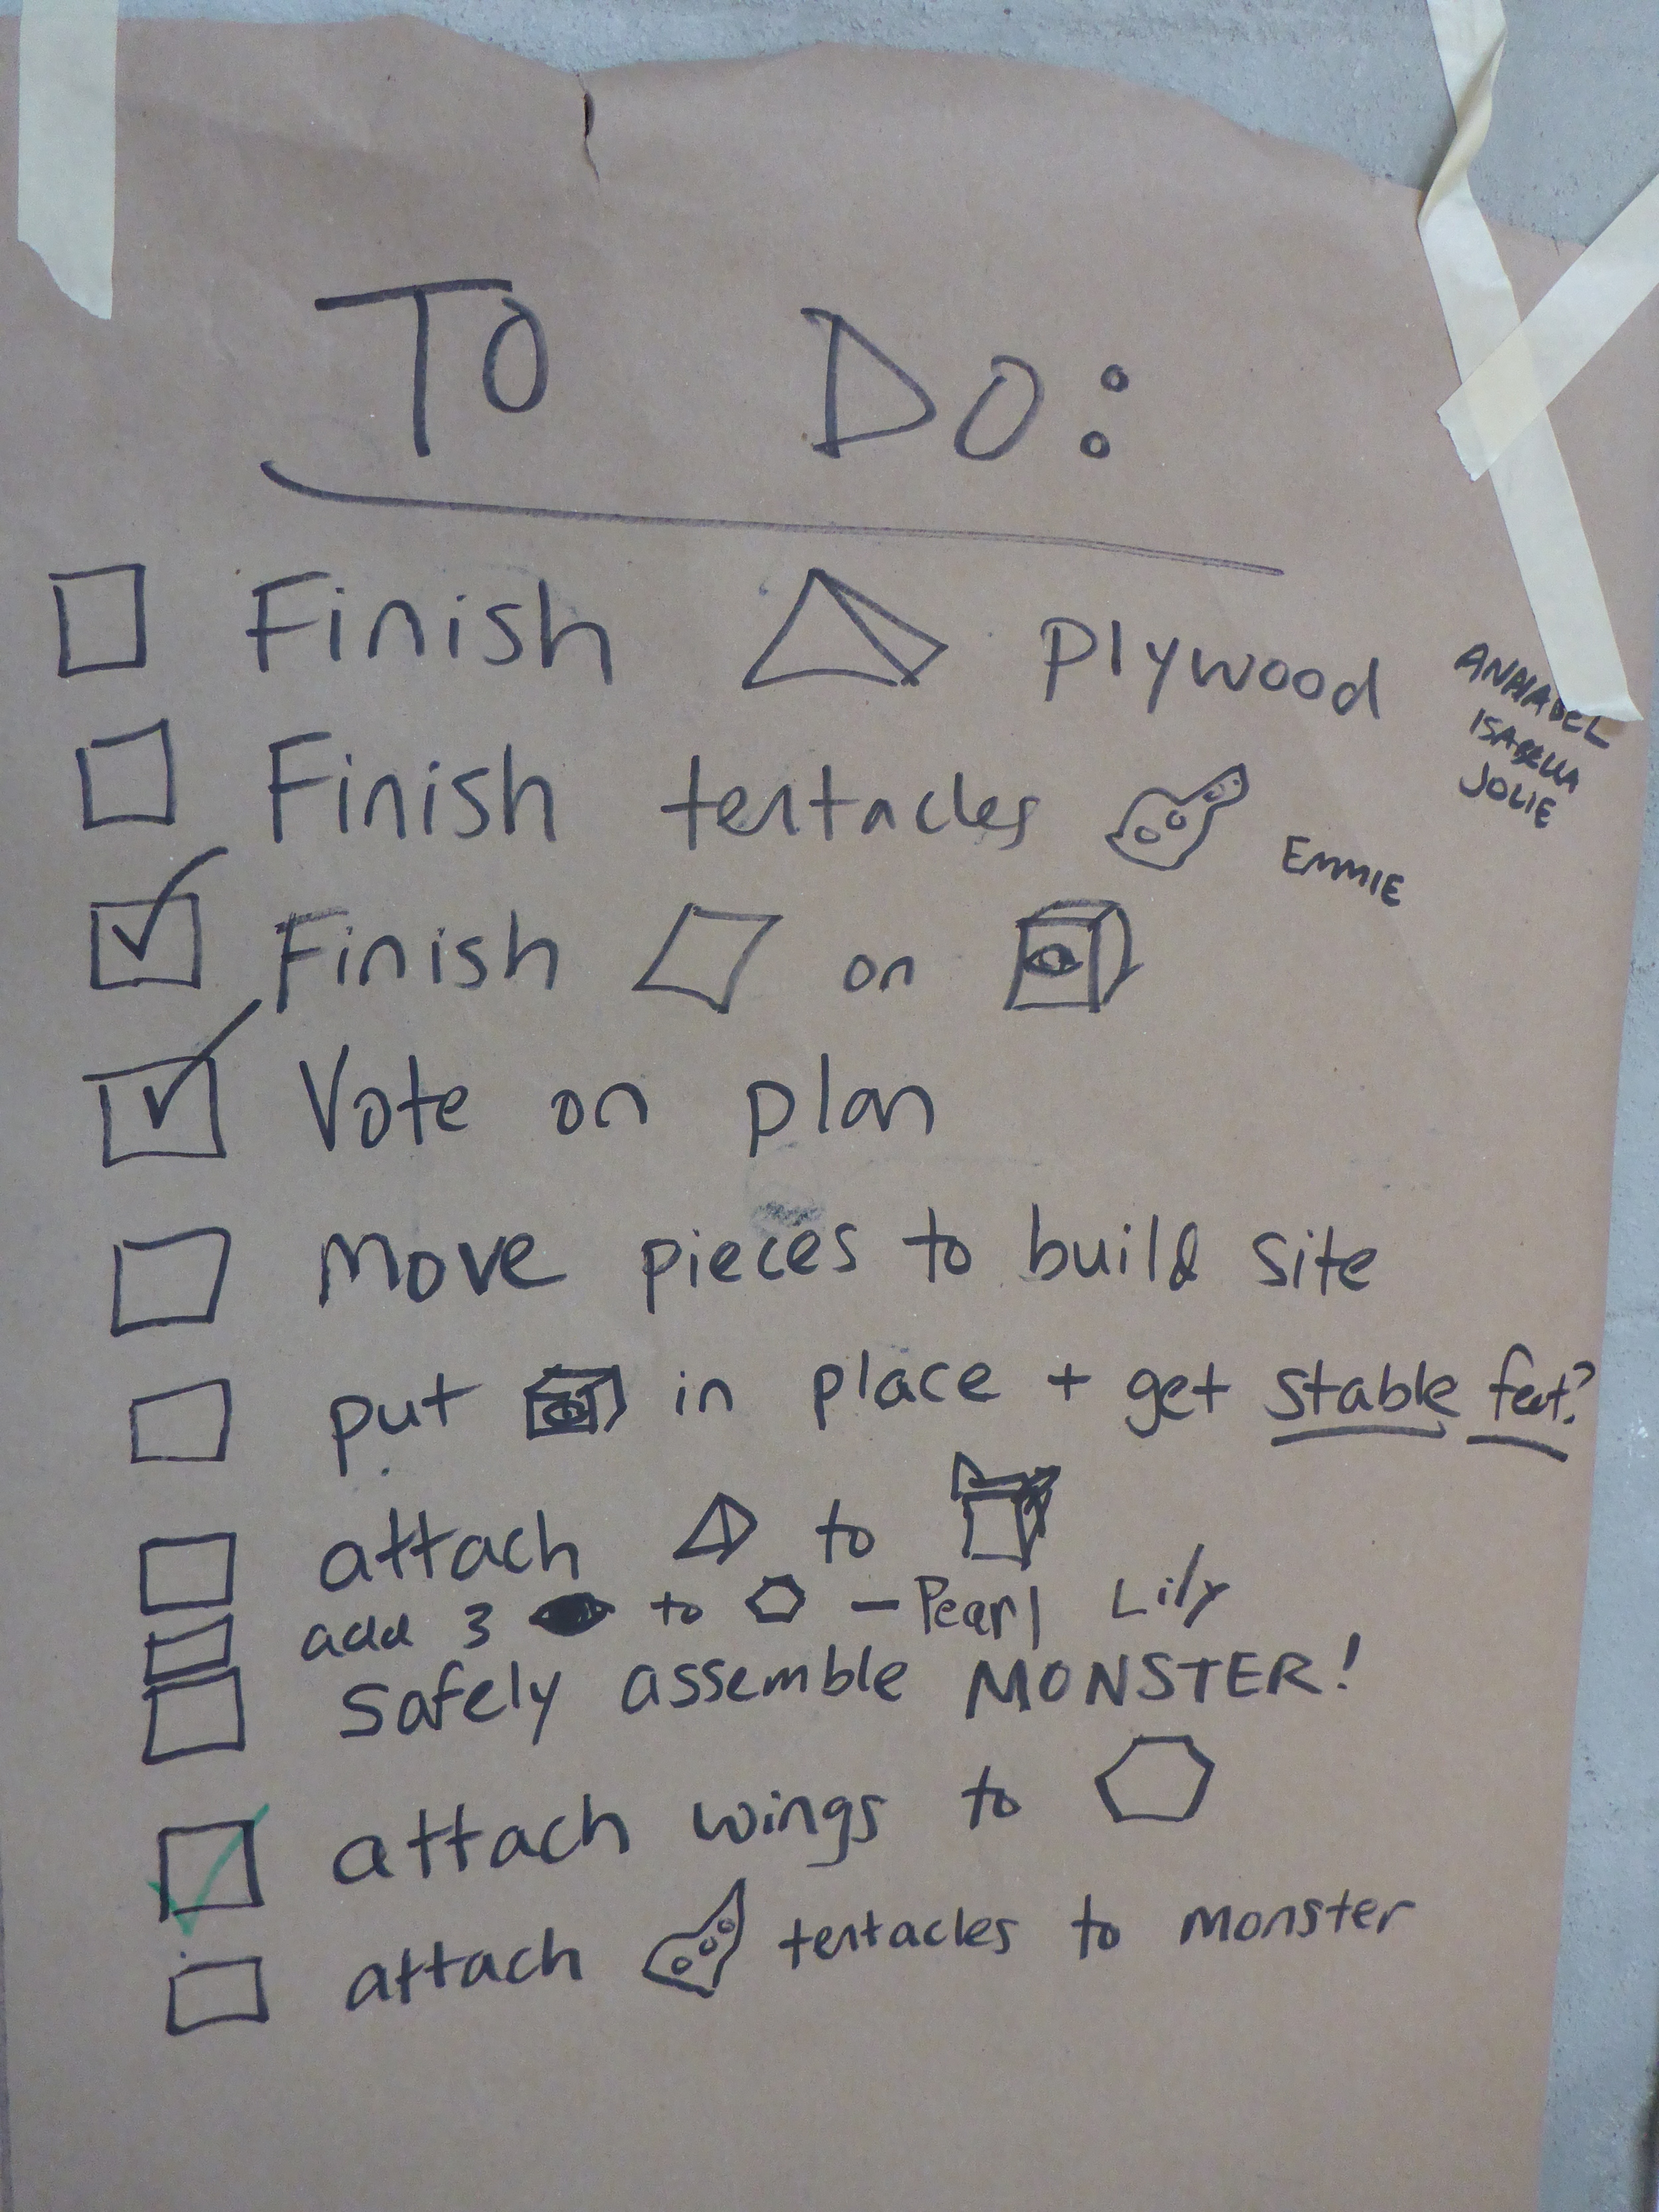 TO DO:
Finish plywood
ANNABEL
ISABELLA
JOLIE
Finish tentacles
EMMIE
Finish on
Vote on plan
Move pieces to build site
put in place + get stable feet?
attach to
add 3 to — Pearl Lily
Safely assemble MONSTER!
attach wings to
attach tentacles to monster